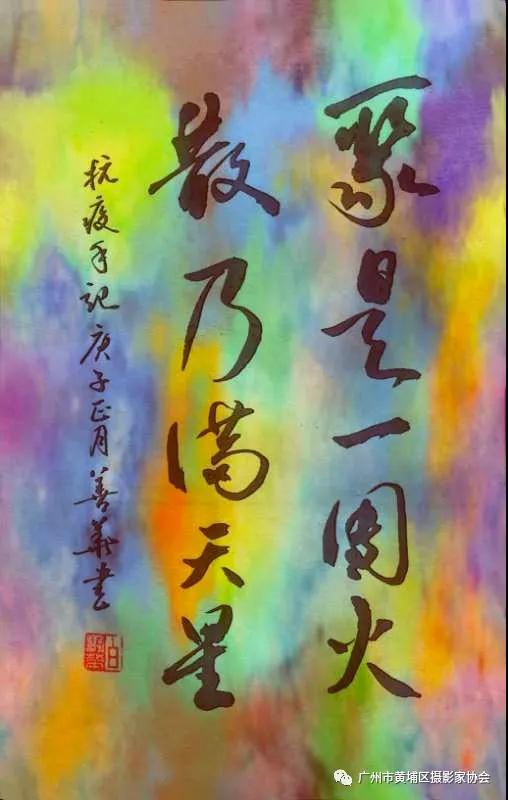 聚是一團火
散乃滿天星
抗疫手記 庚子正月 善 書
广州市黄埔区摄影家协会